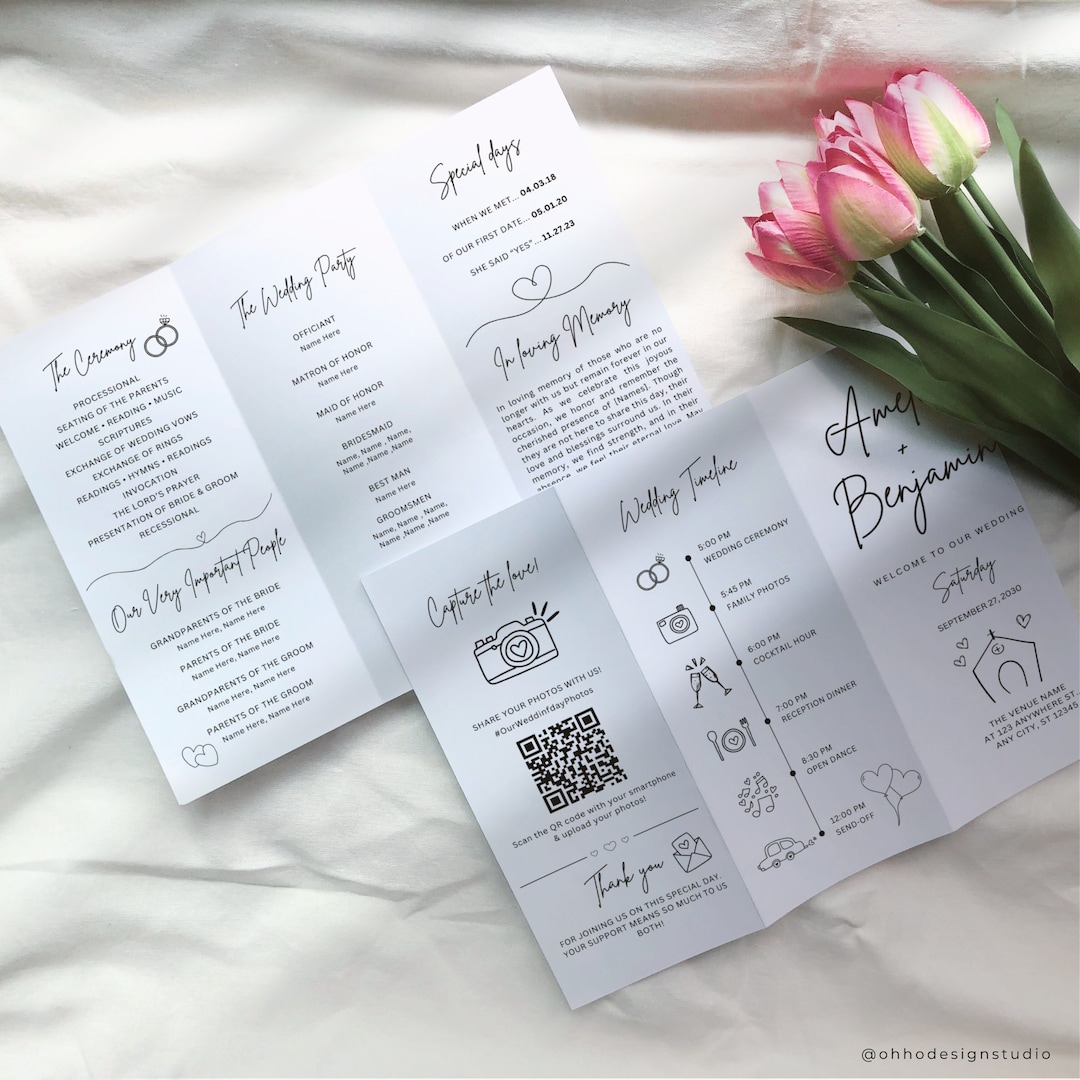 The Ceremony
PROCESSIONAL
SEATING OF THE PARENTS
WELCOME • READING • MUSIC
SCRIPTURES
EXCHANGE OF WEDDING VOWS
EXCHANGE OF RINGS
READINGS • HYMNS • READINGS
INVOCATION
THE LORD'S PRAYER
PRESENTATION OF BRIDE & GROOM
RECESSIONAL
Our Very Important People
GRANDPARENTS OF THE BRIDE
Name Here, Name Here
PARENTS OF THE BRIDE
Name Here, Name Here
GRANDPARENTS OF THE GROOM
Name Here, Name Here
PARENTS OF THE GROOM
Name Here, Name Here
The Wedding Party
OFFICIANT
Name Here
MATRON OF HONOR
Name Here
MAID OF HONOR
Name Here
BRIDESMAID
Name, Name, Name,
Name ,Name ,Name
BEST MAN
Name Here
GROOMSMEN
Name, Name , Name,
Name, Name ,Name
Special days
WHEN WE MET... 04.03.18
OF OUR FIRST DATE... 05.01.20
SHE SAID "YES" ... 11.27.23
In loving Memory
In loving memory of those who are no
longer with us but remain forever in our
hearts. As we celebrate this joyous
occasion, we honor and remember the
cherished presence of [Names]. Though
they are not here to share this day, their
love and blessings surround us. In their
memory, we find strength, and in their
absence, we feel their eternal love. May
Capture the love!
SHARE YOUR PHOTOS WITH US!
#OurWeddinfdayPhotos
Scan the QR code with your smartphone
& upload your photos!
Thank you
FOR JOINING US ON THIS SPECIAL DAY.
YOUR SUPPORT MEANS SO MUCH TO US
BOTH!
Wedding Timeline
5:00 PM
WEDDING CEREMONY
5:45 PM
FAMILY PHOTOS
6:00 PM
COCKTAIL HOUR
7:00 PM
RECEPTION DINNER
8:30 PM
OPEN DANCE
12:00 PM
SEND-OFF
+
Benjamin
WELCOME TO OUR WEDDING
Saturday
SEPTEMBER 27, 2030
THE VENUE NAME
AT 123 ANYWHERE ST.,
ANY CITY, ST 12345
@ohhodesignstudio